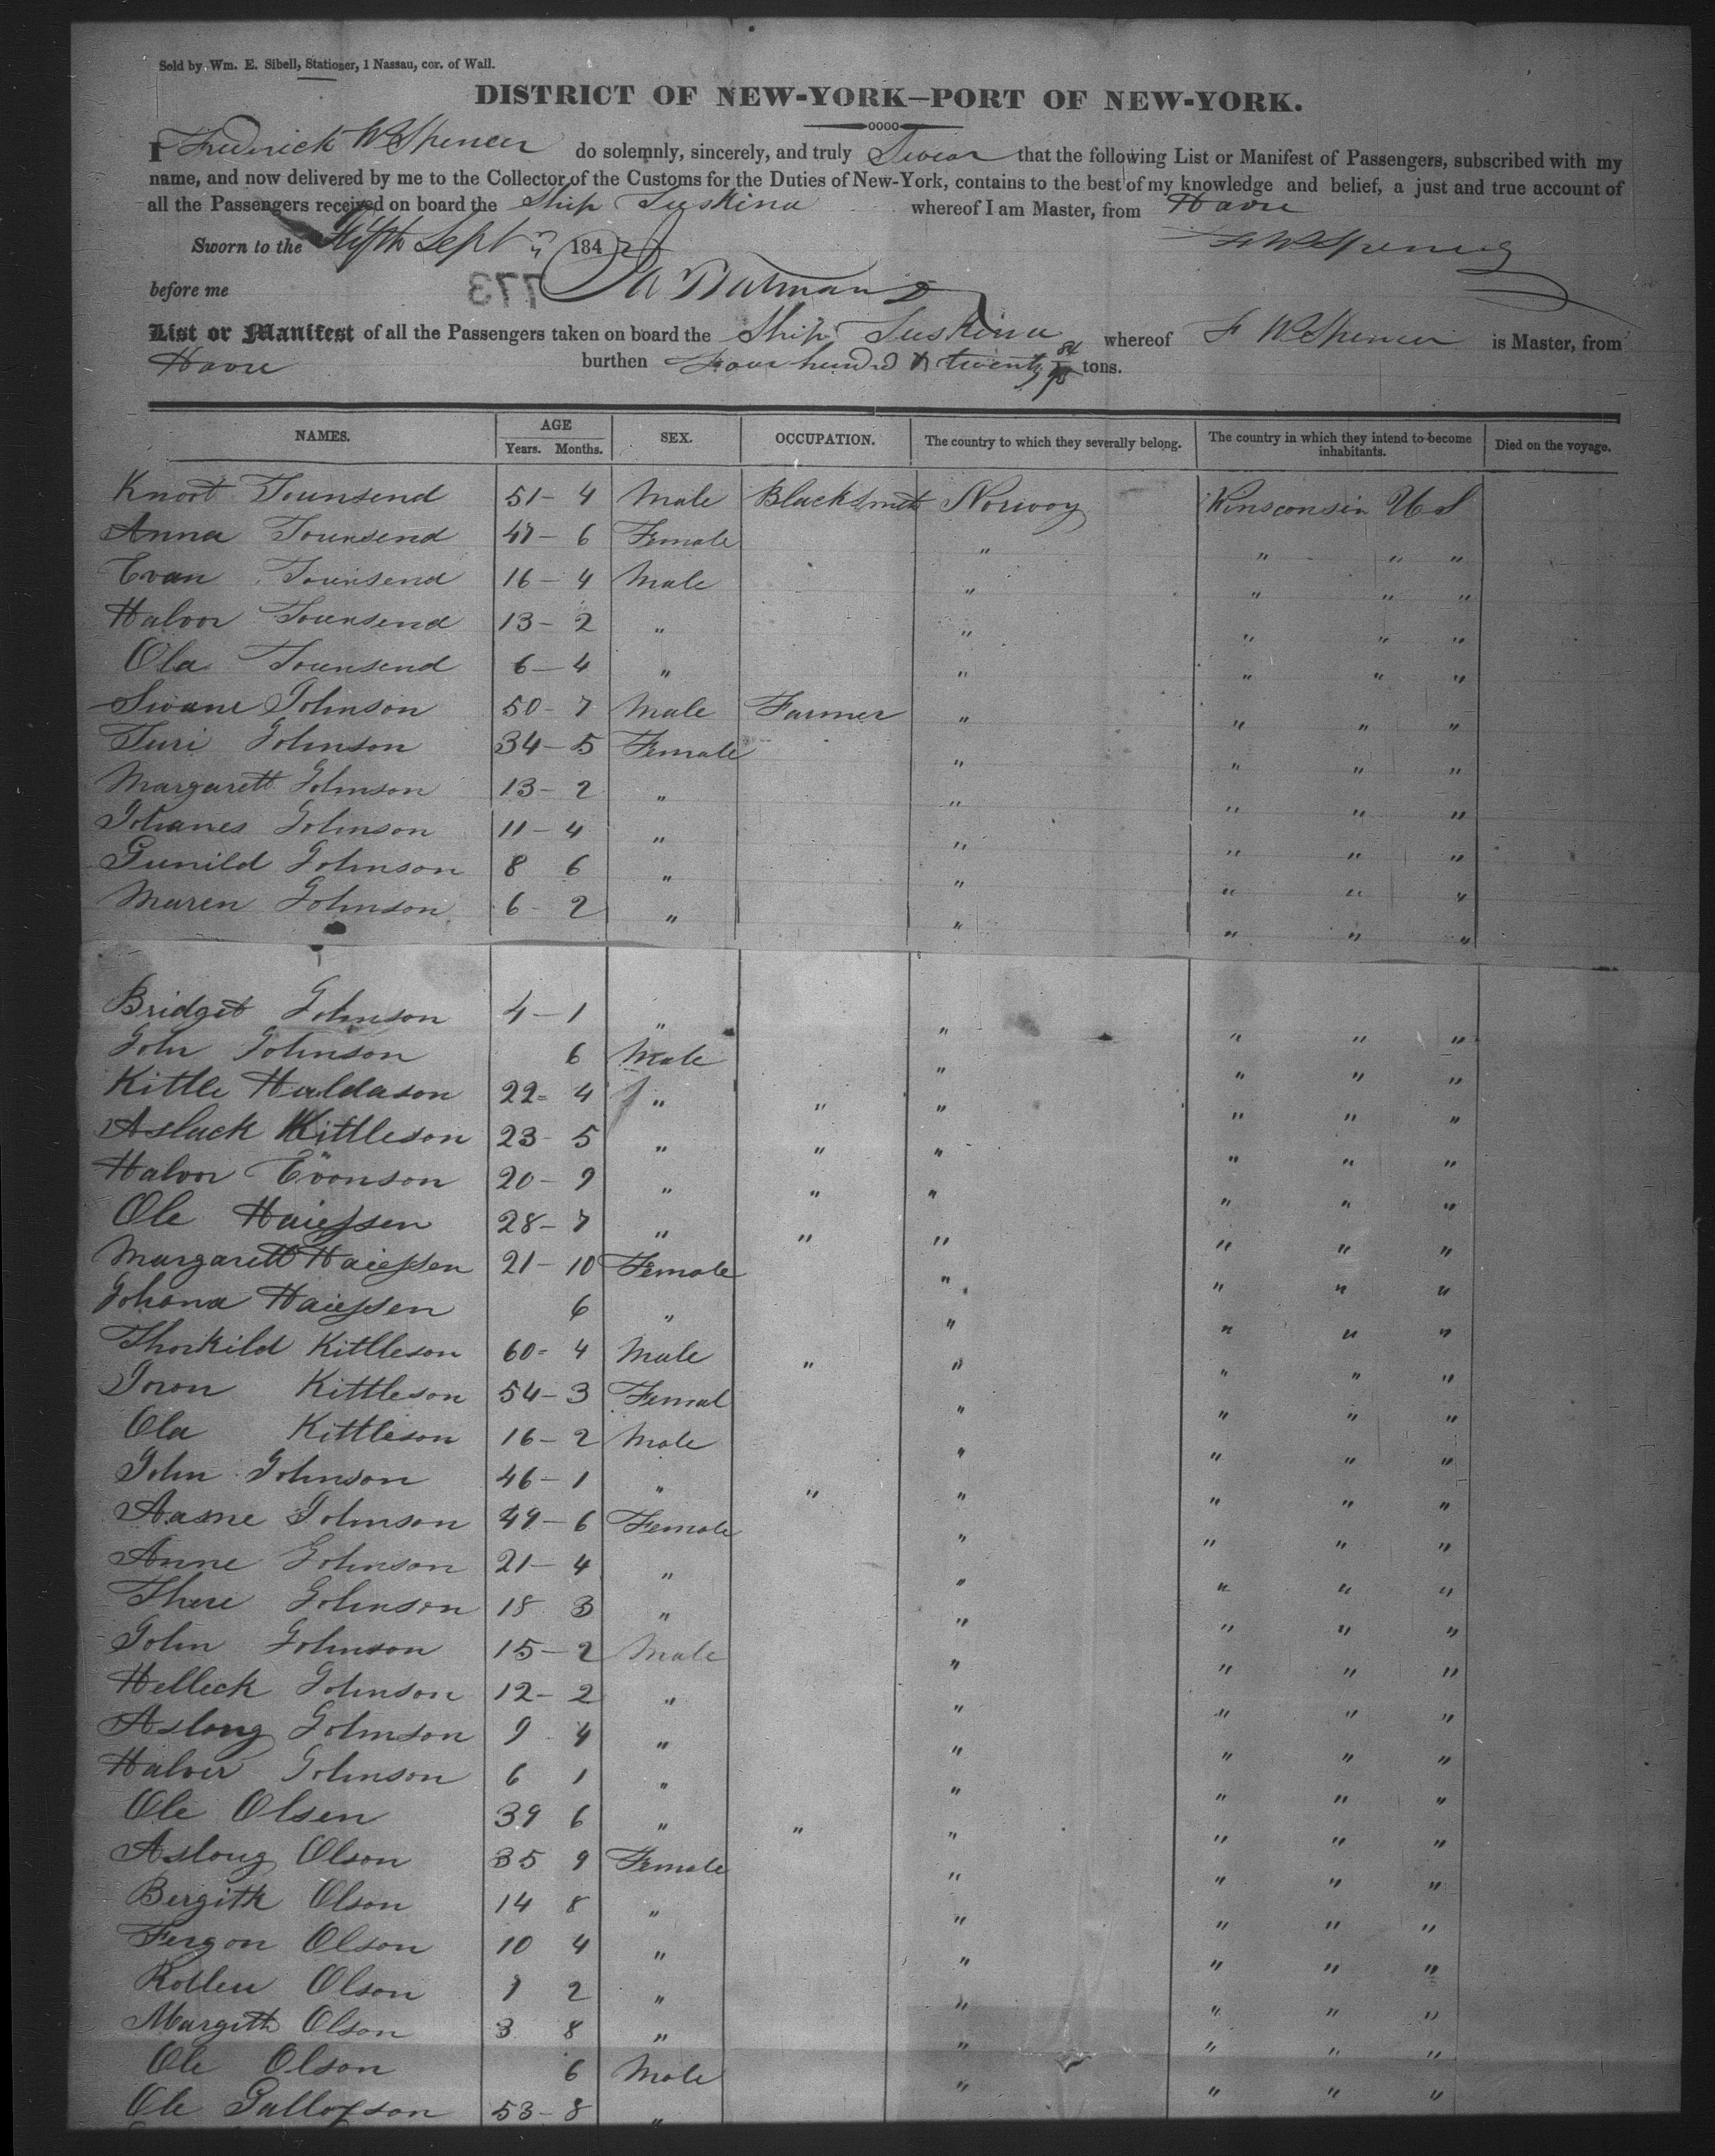 Sold by Wm. E. Sibell, Stationer, 1 Nassau, cor. of Wall.
DISTRICT OF NEW-YORK—PORT OF NEW-YORK.
I Frederick W Spencer do solemnly, sincerely, and truly Swear that the following List or Manifest of Passengers, subscribed with my
name, and now delivered by me to the Collector of the Customs for the Duties of New-York, contains to the best of my knowledge and belief, a just and true account of
all the Passengers received on board the Ship Tuskina whereof I am Master, from Havre
Sworn to the Fifth Sept 184 F W Spencer
before me 773
List or Manifest of all the Passengers taken on board the Ship Tuskina whereof F W Spencer is Master, from
Havre burthen Four hundred & twenty 84/95 tons.
NAMES. AGE SEX. OCCUPATION. The country to which they severally belong. The country in which they intend to become inhabitants. Died on the voyage.
Years. Months.
Knoot Tounsend 51 - 4 Male Blacksmith Norway Winsconsin U S
Anna Tounsend 47 - 6 Female " " " "
Evan Tounsend 16 - 4 Male " " " "
Halvor Tounsend 13 - 2 " " " " "
Ola Tounsend 6 - 4 " " " " "
Swane Johnson 50 - 7 Male Farmer " " " "
Turi Johnson 34 - 5 Female " " " "
Margarett Johnson 13 - 2 " " " " "
Johanes Johnson 11 - 4 " " " " "
Gunild Johnson 8 6 " " " " "
Maren Johnson 6 - 2 " " " " "
Bridget Johnson 4 - 1 " " " " "
John Johnson 6 Male " " " "
Kittle Haldason 22 - 4 " " " " " "
Aslack Kittleson 23 - 5 " " " " " "
Halvor Evonson 20 - 9 " " " " " "
Ole Haiessen 28 - 7 " " " " " "
Margarett Haiessen 21 - 10 Female " " " "
Johana Haiessen 6 " " " " "
Thorkild Kittleson 60 - 4 Male " " " " "
Joron Kittleson 54 - 3 Femal " " " "
Ola Kittleson 16 - 2 Male " " " "
John Johnson 46 - 1 " " " " " "
Aasne Johnson 49 - 6 Female " " " "
Anne Johnson 21 - 4 " " " " "
There Johnson 18 3 " " " " "
John Johnson 15 - 2 Male " " " "
Helleck Johnson 12 - 2 " " " " "
Aslong Johnson 9 4 " " " " "
Halver Johnson 6 1 " " " " "
Ole Olsen 39 6 " " " " " "
Aslong Olson 35 9 Female " " " "
Bergith Olson 14 8 " " " " "
Fergon Olson 10 4 " " " " "
Olson 7 2 " " " " "
Margith Olson 3 8 " " " " "
Ole Olson 6 Male " " " "
Ole 53 - 8 "